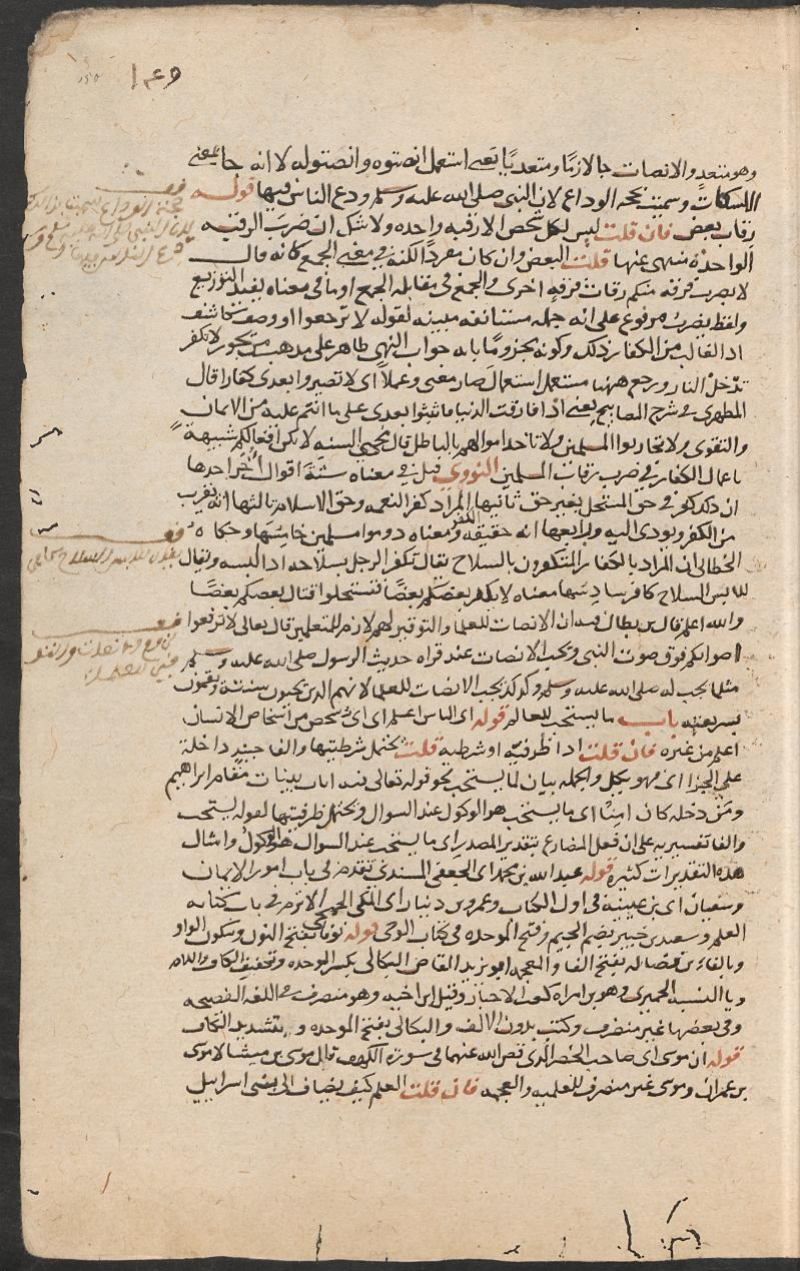 ١٤٩
وهو متعد والانصات جا لازما ومتعديا يعنى استعمل انصتوه وانصتوا له لا انه جا بمعنى
الاسكات وسميت بحجة الوداع لان النبى صلى الله عليه وسلم ودع الناس فيها قوله
رقاب بعض فان قلت ليس لكل شخص الا رقبة واحدة ولا شك ان ضرب الرقبة
الواحدة منهى عنها قلت البعض وان كان مفردا لكنه فى معنى الجمع كانه قال
لا يضرب فرقة منكم رقاب فرقة اخرى والجمع فى مقابلة الجمع او ما فى معناه يفيد التوزيع
ولفظ يضرب مرفوع على انه جملة مستانفة مبينة لقوله لا ترجعوا او وصف كاشف
اذ الغالب من الكفار ذلك وكونه مجزوما بانه جواب النهى ظاهر على مذهب من يجوز لا تكفر
تدخل النار ورجع ههنا مستعمل استعمال صار معنى وعملا اى لا تصيروا بعدى كفارا قال
المظهرى فى شرح المصابيح يعنى اذا فارقت الدنيا فاثبتوا بعدى على ما انتم عليه من الايمان
والتقوى ولا تحاربوا المسلمين ولا تاخذوا اموالهم بالباطل قال محيى السنة لا تكن افعالكم شبيهة
باعمال الكفار فى ضرب رقاب المسلمين النووى قيل فى معناه ستة اقوال اخر احدها
ان ذلك كفر فى حق المستحل بغير حق ثانيها المراد كفر النعمة وحق الاسلام ثالثها انه يقرب
من الكفر ويودى اليه ورابعها انه حقيقة الكفر ومعناه دوموا مسلمين خامسها وحكاه
الخطابى ان المراد بالكفار المتكفرون بالسلاح يقال تكفر الرجل بسلاحه اذا لبسه ويقال
للابس السلاح كافر سادسها معناه لا يكفر بعضكم بعضا فتستحلوا قتال بعضكم بعضا
والله اعلم قال بن بطال فيه ان الانصات للعلما والتوقير لهم لازم للمتعلمين قال تعالى لا ترفعوا
اصواتكم فوق صوت النبى ويجب الانصات عند قراة حديث الرسول صلى الله عليه وسلم
مثلما يجب له صلى الله عليه وسلم وكذلك يجب الانصات للعلما لانهم الذين يحيون سنته ويقومون
بشريعته باب ما يستحب للعالم قوله اى الناس اعلم اى اى شخص من اشخاص الانسان
اعلم من غيره فان قلت اذا ظرفية او شرطية قلت يحتمل شرطيتها والفا حينئذ داخلة
على الجزا اى فهو يكل والجملة بيان لما يستحب نحو قوله تعالى فيه ايات بينات مقام ابراهيم
ومن دخله كان امنا اى ما يستحب هو الوكول عند السوال ويحتمل ظرفيتها لقوله يستحب
والفا تفسيرية على ان فعل المضارع بتقدير المصدر اى ما يستحب عند السوال هو الوكول وامثال
هذه التقديرات كثيرة قوله عبد الله بن محمد اى الجعفى المسندى تقدم فى باب امور الايمان
وسفيان اى بن عيينة فى اول الكتاب وعمرو بن دينار اى المكى الجمحى الاثرم فى باب كتابة
العلم وسعيد بن جبير بضم الجيم وفتح الموحدة فى كتاب الوحى قوله نوفا بفتح النون وسكون الواو
وبالفاء بن فضالة بفتح الفا والمعجمة ابو يزيد القاص البكالى بكسر الموحدة وتخفيف الكاف واللام
ويا النسبة الحميرى وهو بن امراة كعب الاحبار وقيل ابن اخيه وهو منصرف فى اللغة الفصيحة
وفى بعضها غير منصرف وكتب بدون الالف والبكالى بفتح الموحدة و بتشديد الكاف
قوله ان موسى اى صاحب الخضر الذى قص الله عنهما فى سورة الكهف قال موسى بن ميشا لا موسى
بن عمران وموسى غير منصرف للعلمية والعجمة فان قلت العلم كيف يضاف الى بنى اسرائيل